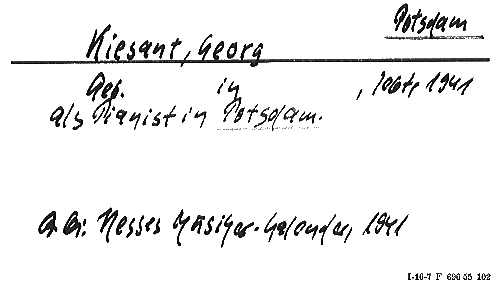 Potsdam
Kiesant, Georg
Geb. in , lebte 1941
als Pianist in Potsdam.
Hesses Musiker-Kalender, 1941
I-16-7 F 690 55 102